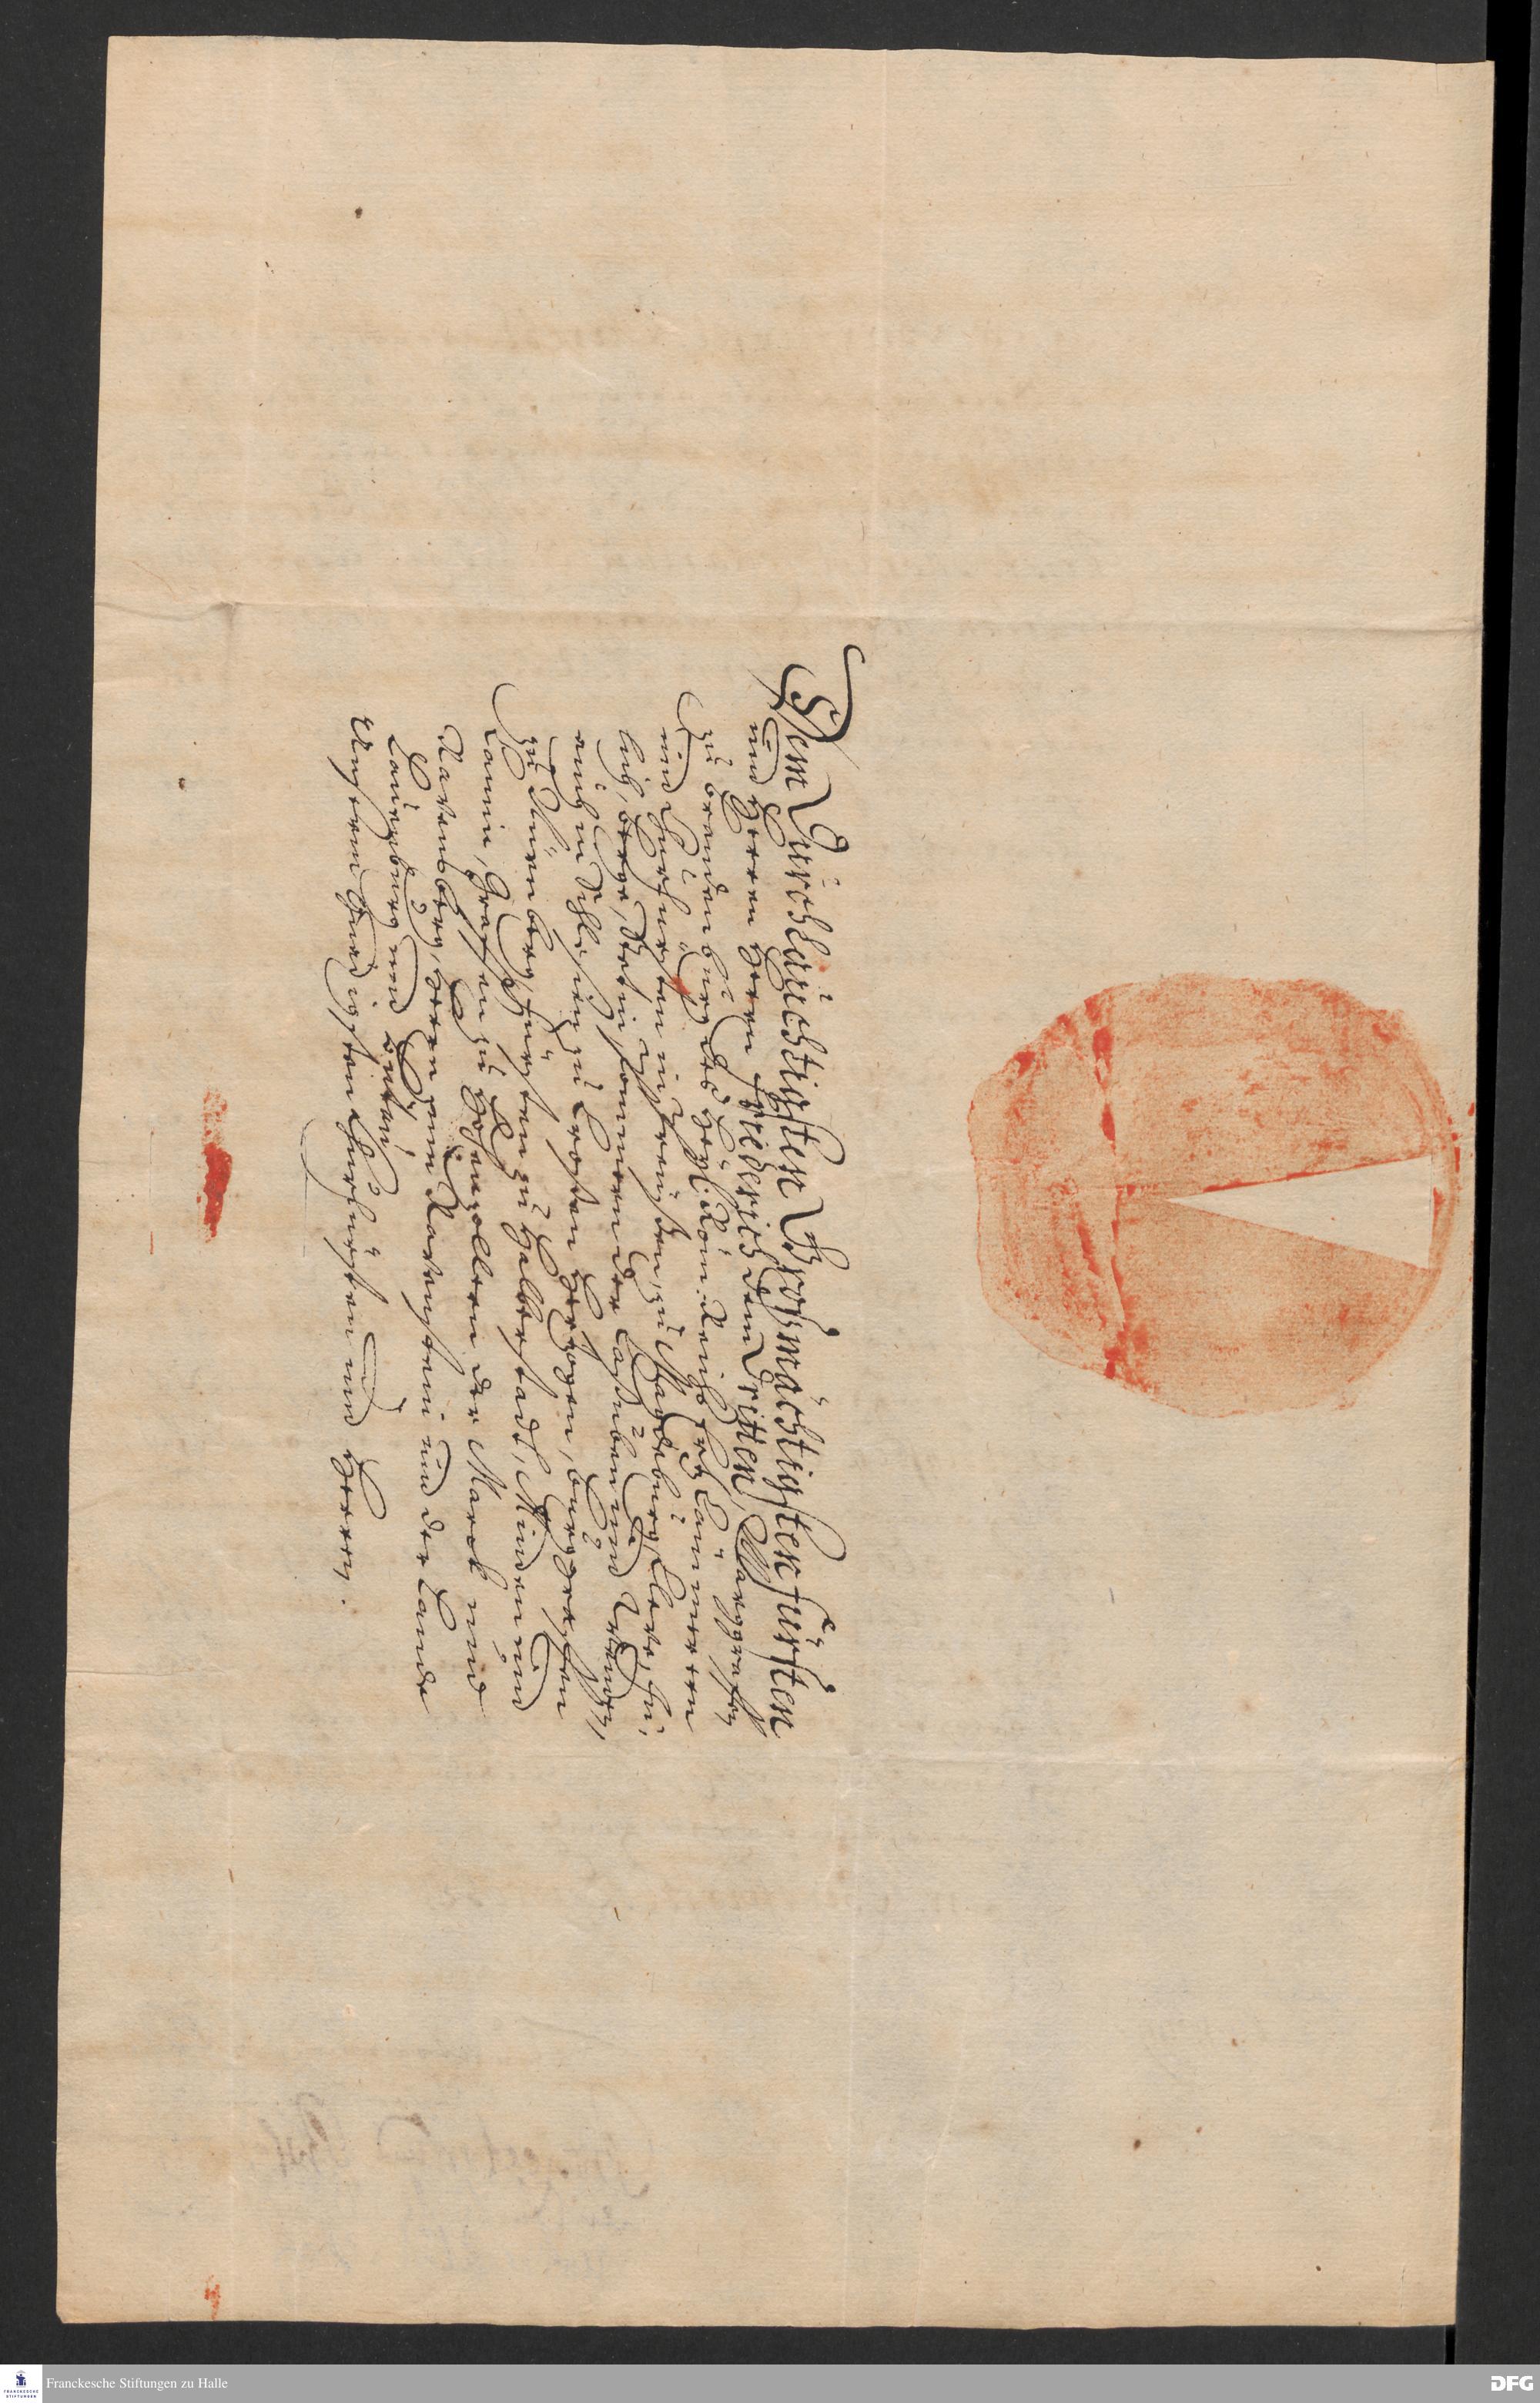 Dem Durchlauchtigsten Großmächtigsten Fürsten
und Herren Herrn Friederich dem Dritten, Marggraffen
zu Brandenburg des Heyl. Röm. Reichs Ertz Cämmerern
und Churfürsten in Preußen, zu Magdeburg, Cleve, Gü¬
lich, Berge, Stetin, Pommern der Caßuben und Wenden,
auch in Schlesien zu Croßen Hertzogen, Burggraffen
zu Nürenberg, Fürsten zu Halberstadt, Minden und
Camin, Graffen zu Hohenzollern, der Marck und
Ravensberg, Herrn zum Ravenstein und der Lande
Lauenburg und Butau,
Unserm Gnädigsten Churfürsten und Herren.
Franckesche Stiftungen zu Halle
DFG